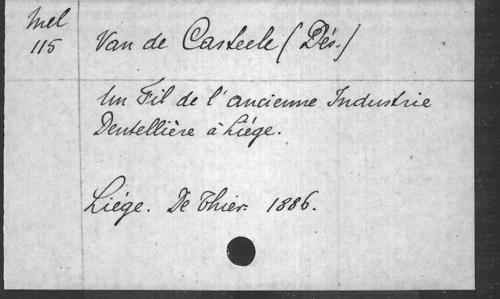 Mel
115
Van de Casteele (Dés.)
Un Fil de l'ancienne Industrie
Dentellière à Liége.
Liége. De Thier. 1886.